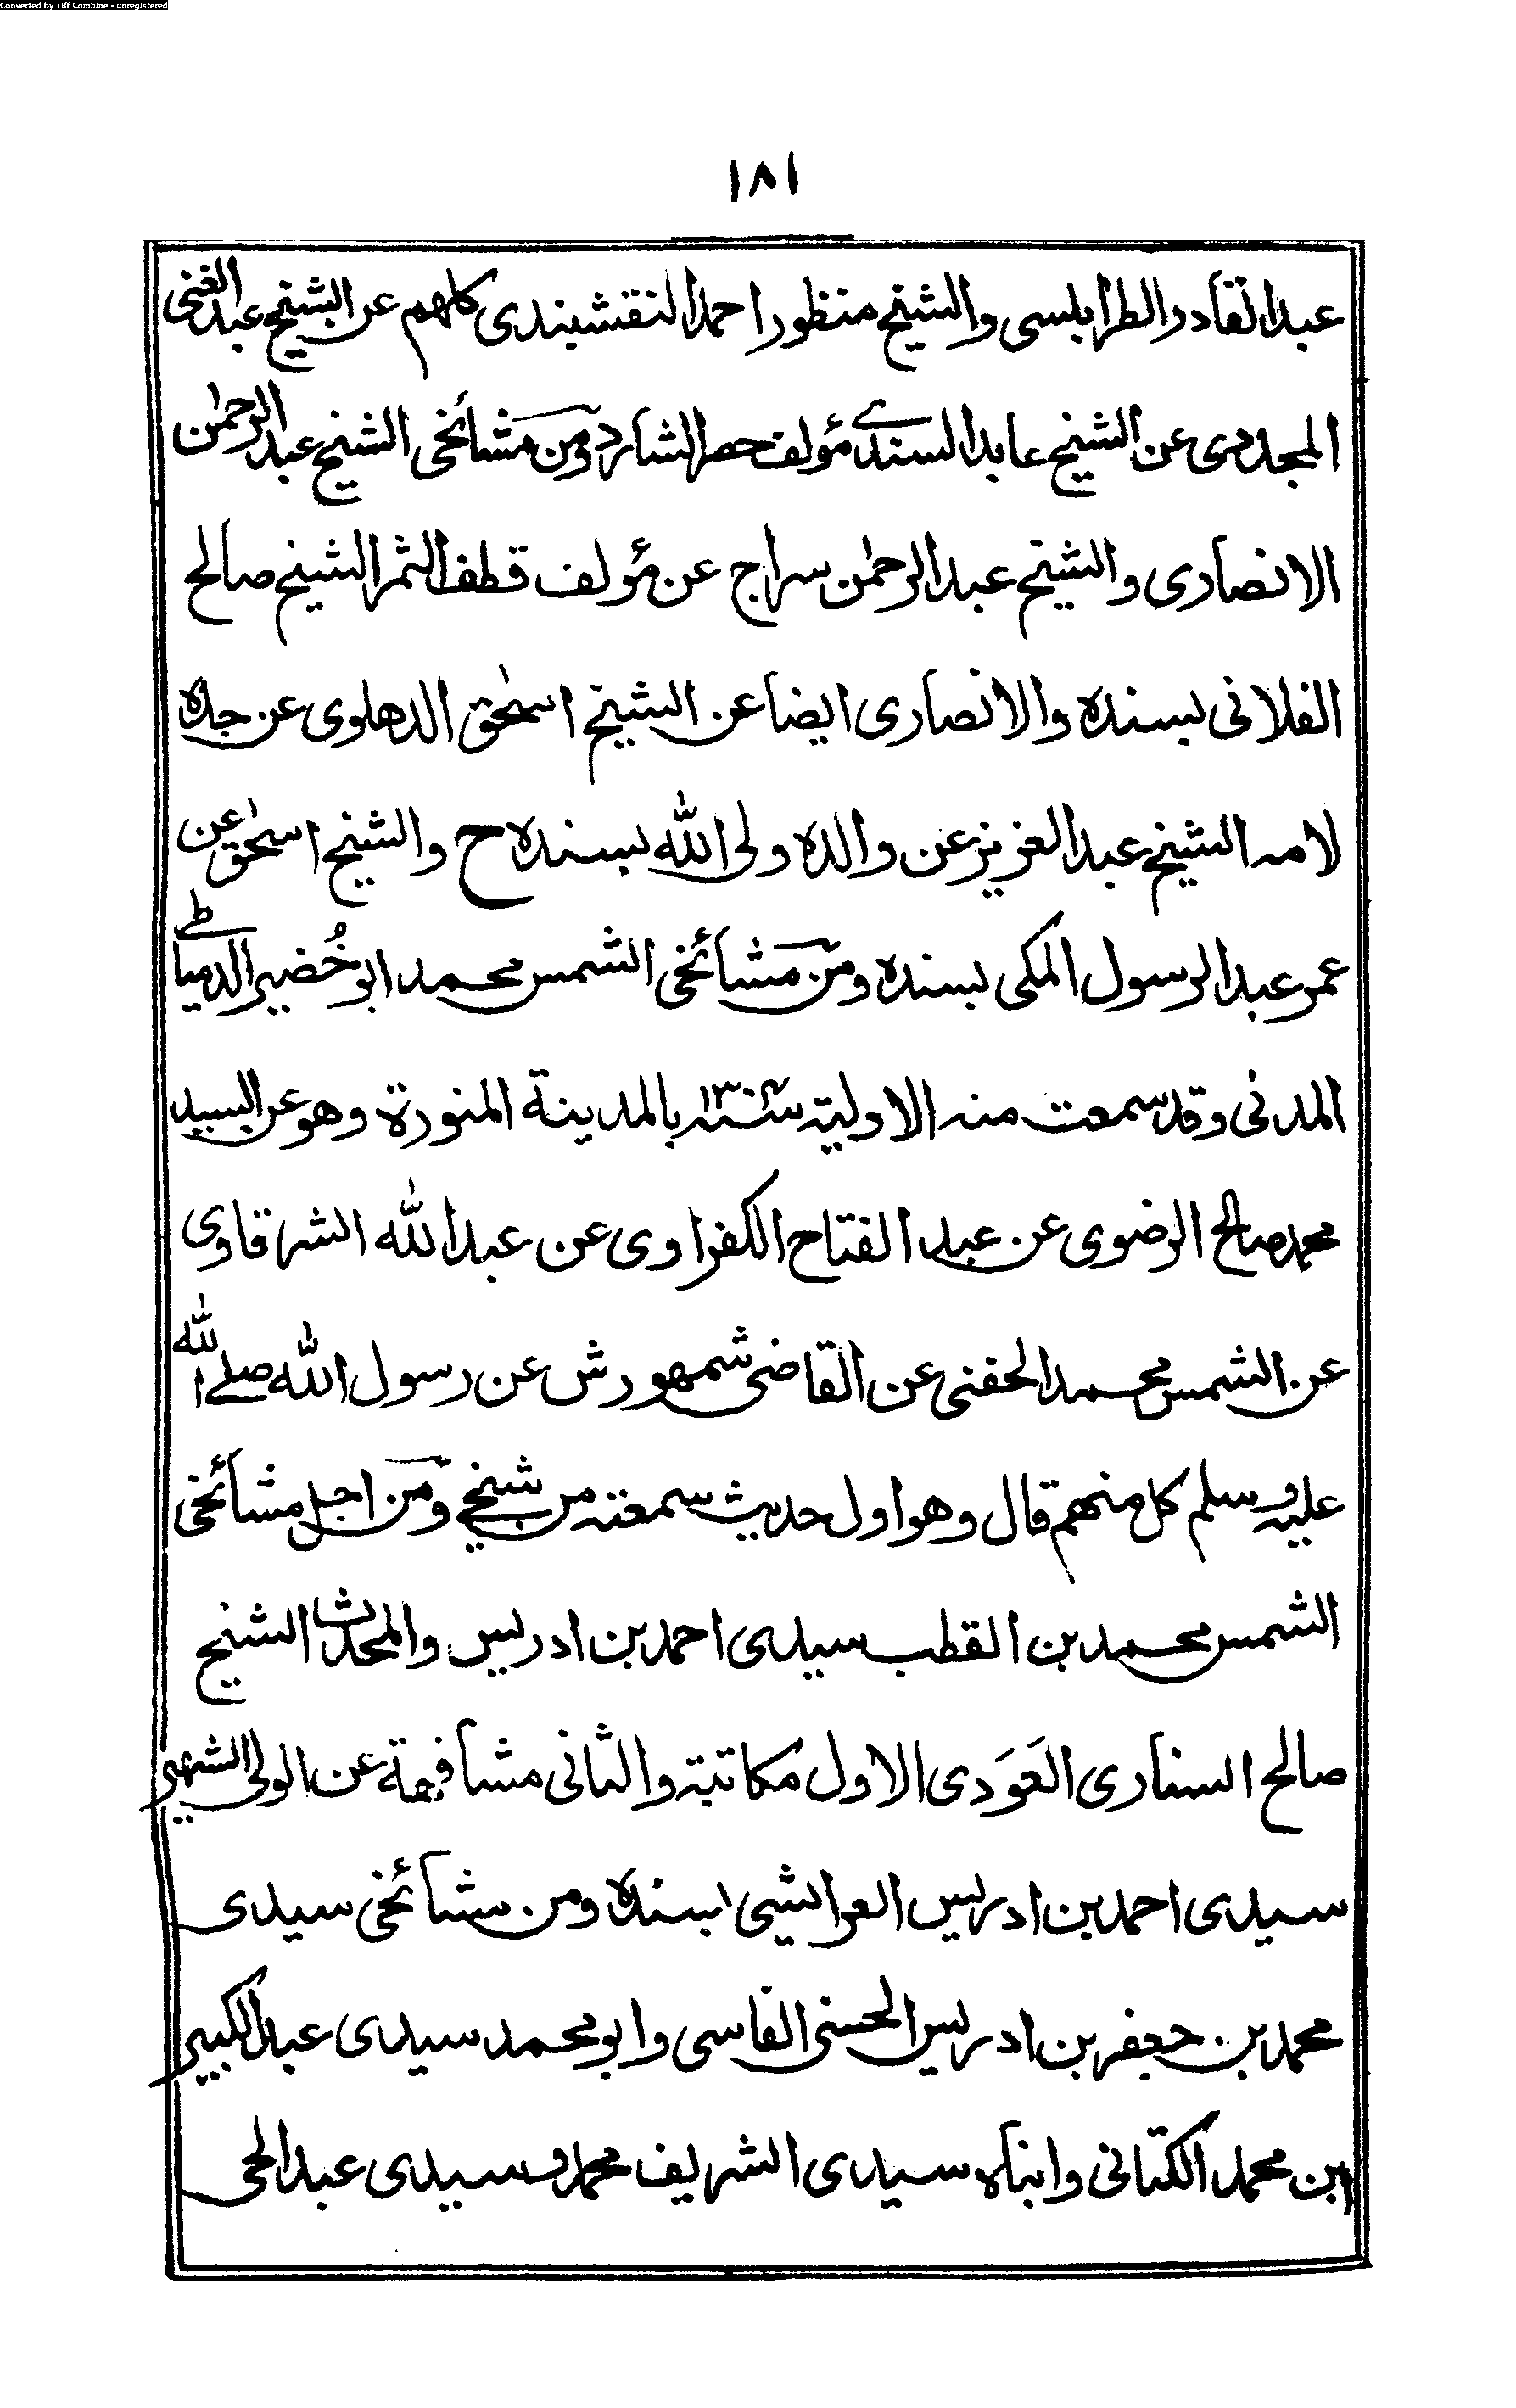 Converted by Tiff Combine - unregistered
١٨١
عبدالقادر الطرابلسى والشيخ منظور احمد النقشبندى كلهم عن الشيخ عبدالغنى
المجددى عن الشيخ عابد السندے مؤلف حصر الشارد ومن مشائخى الشيخ عبدالرحمٰن
الانصارى والشيخ عبدالرحمٰن سراج عن مؤلف قطف الثمر الشيخ صالح
الفلانى بسنده والانصارى ايضا عن الشيخ اسحٰق الدهلوى عن جده
لامه الشيخ عبدالعزيز عن والده ولى الله بسنده ح والشيخ اسحٰق عن
عمر عبدالرسول المكى بسنده ومن مشائخى الشمس محمد ابو خُضير الدمياطے
المدنى وقد سمعت منه الاولية بالمدينة المنورة وهو عن السيد
محمد صالح الرضوى عن عبد الفتاح الكفراوى عن عبدالله الشرقاوى
عن الشمس محمد الحفنى عن القاضى شمهورش عن رسول الله صلے الله
عليه وسلم كل منهم قال وهو اول حديث سمعته من شيخي ومن اجل مشائخى
الشمس محمد بن القطب سيدى احمد بن ادريس والمحدث الشيخ
صالح السنارى العَوَدى الاول مكاتبة والثانى مشافهة عن الولى الشهير
سيدى احمد بن ادريس العرائشى بسنده ومن مشائخى سيدى
محمد بن جعفر بن ادريس الحسنى الفاسى وابو محمد سيدى عبدالكبير
ابن محمد الكتانى وابناه سيدى الشريف محمد وسيدى عبدالحى